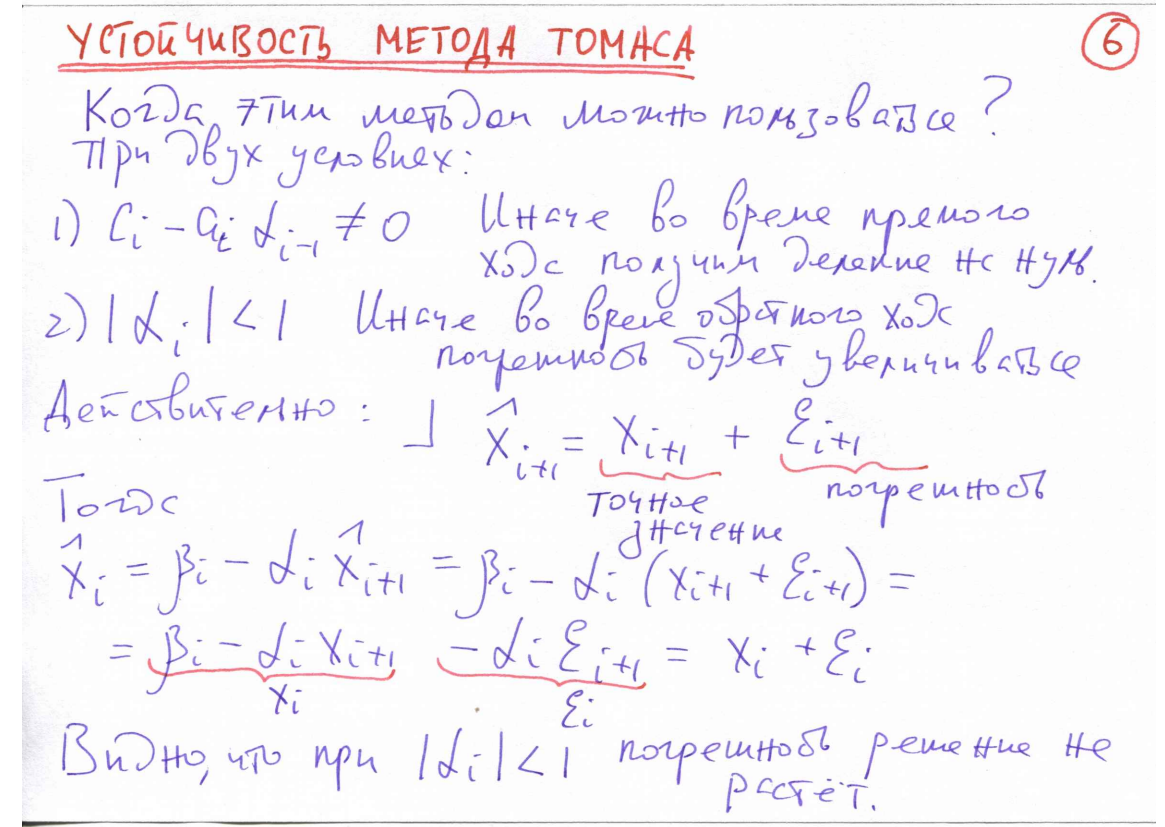 УСТОЙЧИВОСТЬ МЕТОДА ТОМАСА 6
Когда этим методом можно пользоваться?
При двух условиях:
1) Cᵢ - aᵢ αᵢ₋₁ ≠ 0 Иначе во время прямого
хода получим деление на нуль.
2) |αᵢ| < 1 Иначе во время обратного хода
погрешность будет увеличиваться
Действительно: ⅃ x̂ᵢ₊₁ = xᵢ₊₁ + εᵢ₊₁
Тогда точное погрешность
значение
x̂ᵢ = βᵢ - αᵢ x̂ᵢ₊₁ = βᵢ - αᵢ (xᵢ₊₁ + εᵢ₊₁) =
= βᵢ - αᵢ xᵢ₊₁ - αᵢ εᵢ₊₁ = xᵢ + εᵢ
xᵢ εᵢ
Видно, что при |αᵢ| < 1 погрешность решения не
растёт.